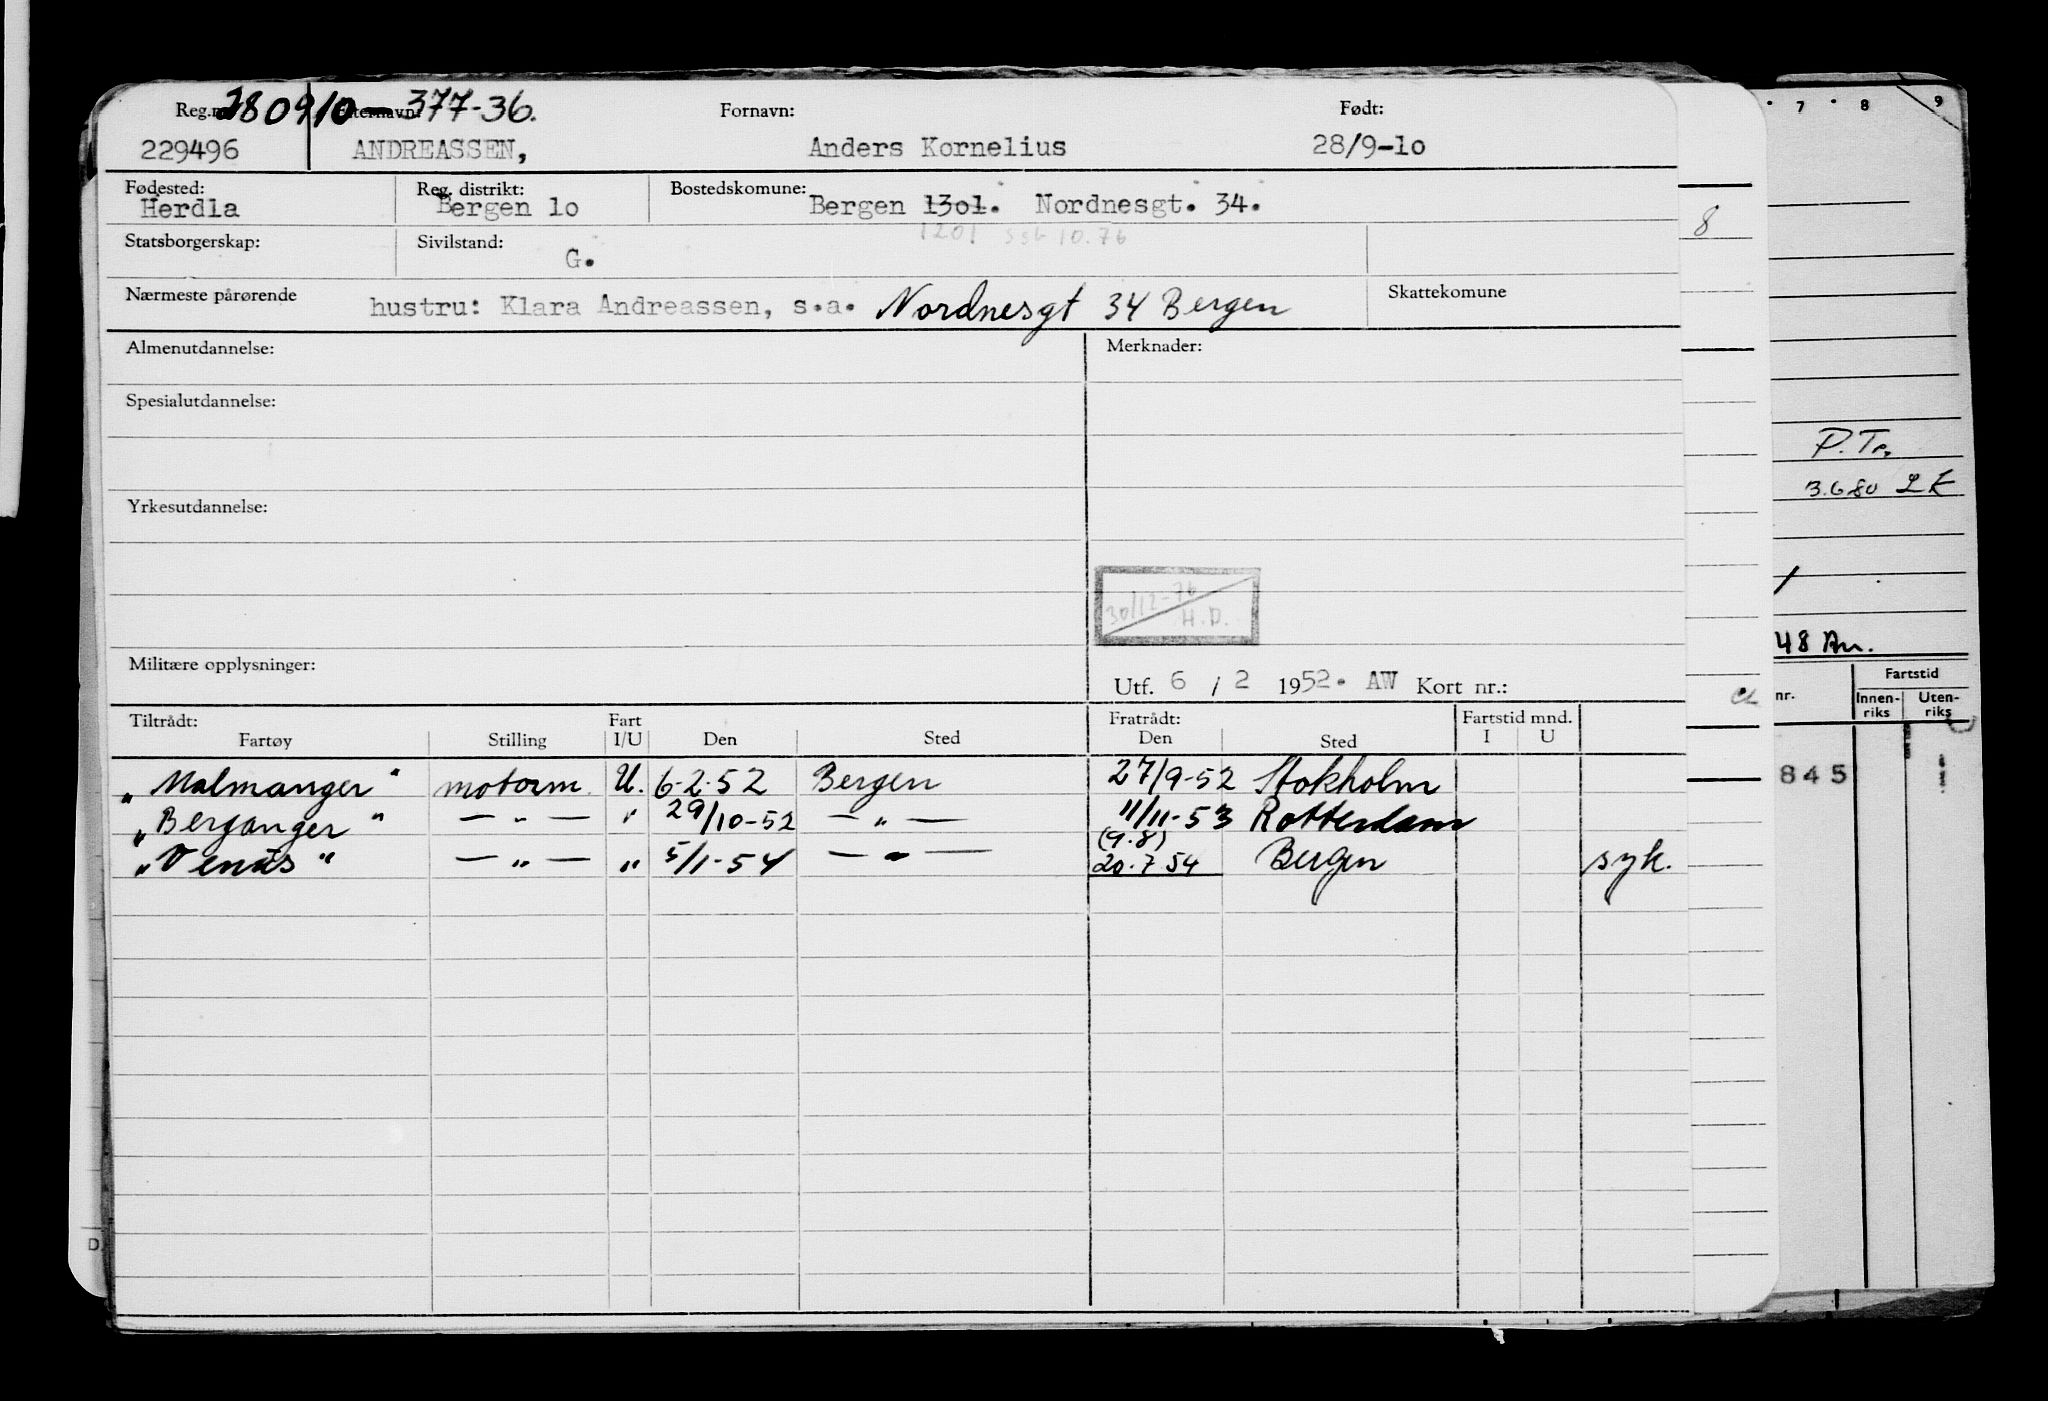 280910-377-36.
Reg.nr. Etternavn: Fornavn: Født:
229496 ANDREASSEN, Anders Kornelius 28/9-1o
Fødested: Reg. distrikt: Bostedskomune:
Herdla Bergen 1o Bergen 13o1. Nordnesgt. 34.
1201 ssb 10.76
Statsborgerskap: Sivilstand: G.
Nærmeste pårørende hustru: Klara Andreassen, s.a. Nordnesgt 34 Bergen Skattekomune
Almenutdannelse: Merknader:
Spesialutdannelse:
Yrkesutdannelse:
30/12-76
H.D.
Militære opplysninger:
Utf. 6 / 2 1952. AW Kort nr.:
Tiltrådt: Fart Fratrådt: Fartstid mnd.
Fartøy Stilling I/U Den Sted Den Sted I U
"Malmanger" motorm. U. 6-2-52 Bergen 27/9-52 Stokholm
"Berganger" — " — " 29/10-52 — " — 11/11-53 Rotterdam
(9.8)
"Venus" — " — " 5/1-54 — " — 20.7 54 Bergen syk.
7 8 9
8
P.Tr.
3.6.80 LK
48 An.
nr. Fartstid
Innen-riks Uten-riks
845
D.